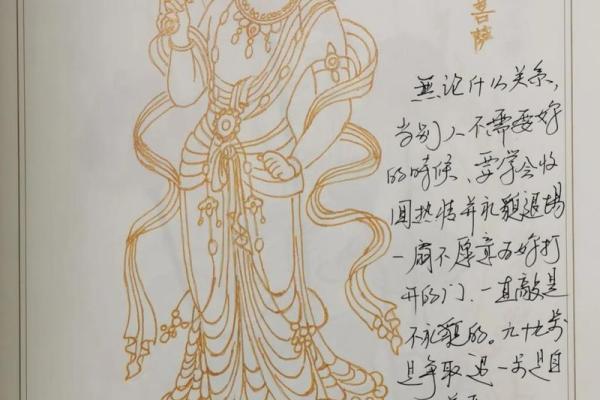 菩薩
無论什么关系,
当别人不需要妳
的時候、要学会收
回热情并礼貌退場
一扇不愿意为妳打
开的门、一直敲是
不礼貌的。九十九步
是争取退一步是自